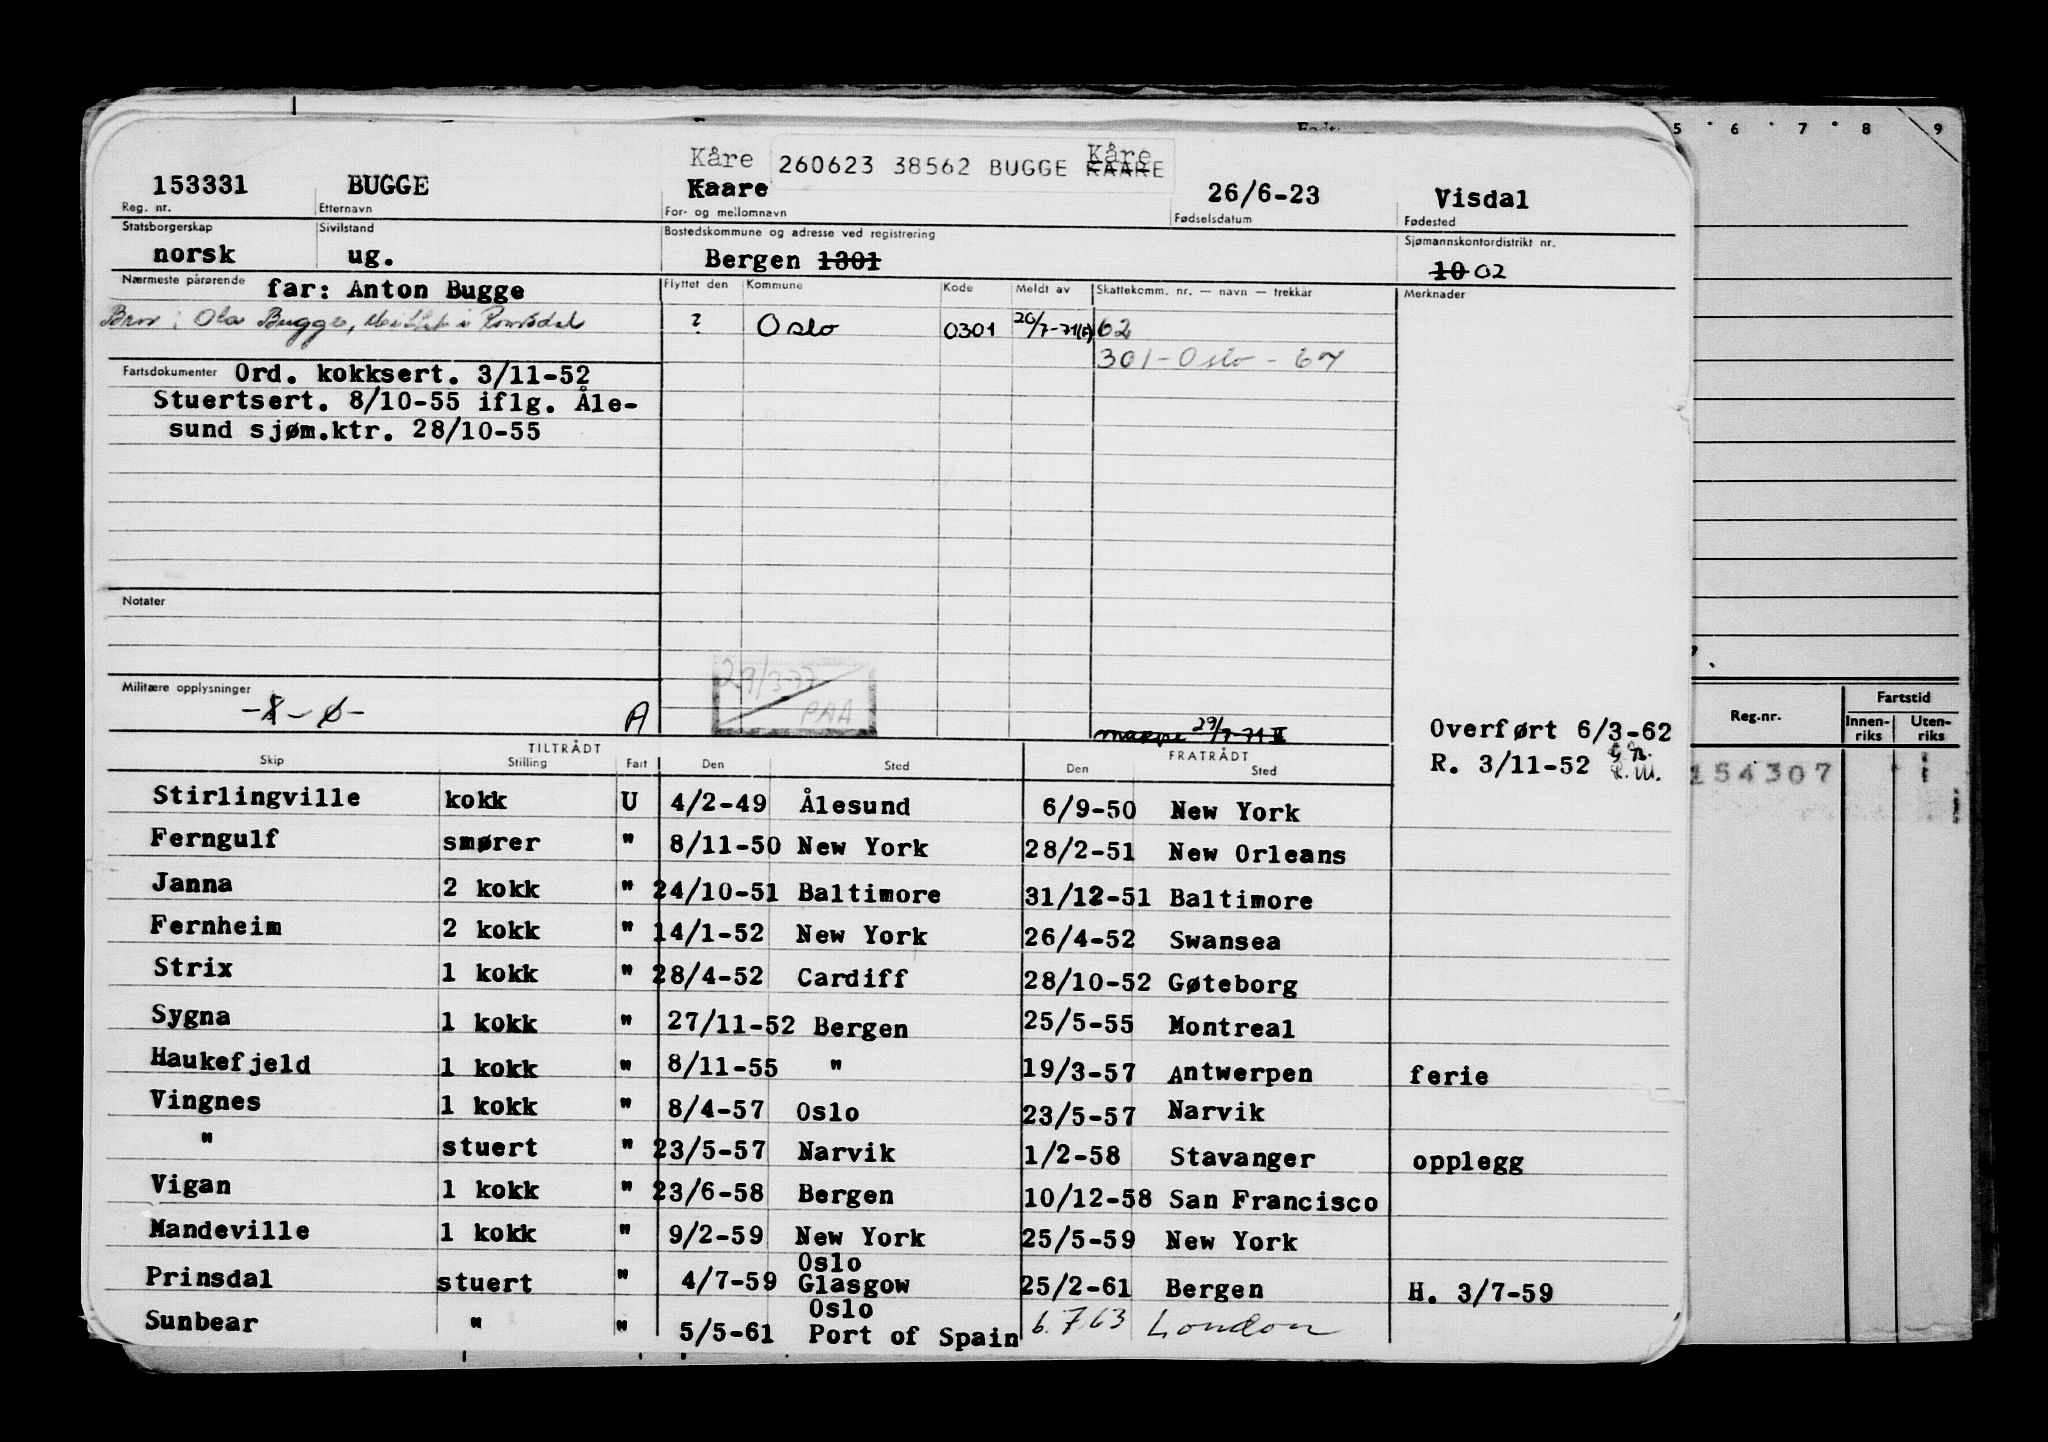 Født:
5 6 7 8 9
Kåre 260623 38562 BUGGE KAARE Kåre
153331 BUGGE Kaare 26/6-23 Visdal
Reg. nr. Etternavn For- og mellomnavn Fødselsdatum Fødested
Statsborgerskap Sivilstand Bostedskommune og adresse ved registrering Sjømannskontordistrikt nr.
norsk ug. Bergen 1301 10 02
Nærmeste pårørende far: Anton Bugge Flyttet den Kommune Kode Meldt av Skattekomm. nr. — navn — trekkår Merknader
Bror: Ola Bugge, i Romsdal ? Oslo 0301 62
301 - Oslo - 67
Fartsdokumenter Ord. kokksert. 3/11-52
Stuertsert. 8/10-55 iflg. Åle-
sund sjøm.ktr. 28/10-55
Notater
29/3-77
PAA
Militære opplysninger
A
29/7-71
Overført 6/3-62
R. 3/11-52
Reg.nr. Fartstid
Innen-riks Uten-riks
154307
TILTRÅDT FRATRÅDT
Skip Stilling Fart Den Sted Den Sted
Stirlingville kokk U 4/2-49 Ålesund 6/9-50 New York
Ferngulf smører " 8/11-50 New York 28/2-51 New Orleans
Janna 2 kokk " 24/10-51 Baltimore 31/12-51 Baltimore
Fernheim 2 kokk " 14/1-52 New York 26/4-52 Swansea
Strix 1 kokk " 28/4-52 Cardiff 28/10-52 Gøteborg
Sygna 1 kokk " 27/11-52 Bergen 25/5-55 Montreal
Haukefjeld 1 kokk " 8/11-55 " 19/3-57 Antwerpen ferie
Vingnes 1 kokk " 8/4-57 Oslo 23/5-57 Narvik
" stuert " 23/5-57 Narvik 1/2-58 Stavanger opplegg
Vigan 1 kokk " 23/6-58 Bergen 10/12-58 San Francisco
Mandeville 1 kokk " 9/2-59 New York 25/5-59 New York
Oslo
Prinsdal stuert " 4/7-59 Glasgow 25/2-61 Bergen H. 3/7-59
Oslo
Sunbear " " 5/5-61 Port of Spain 6.7.63 London